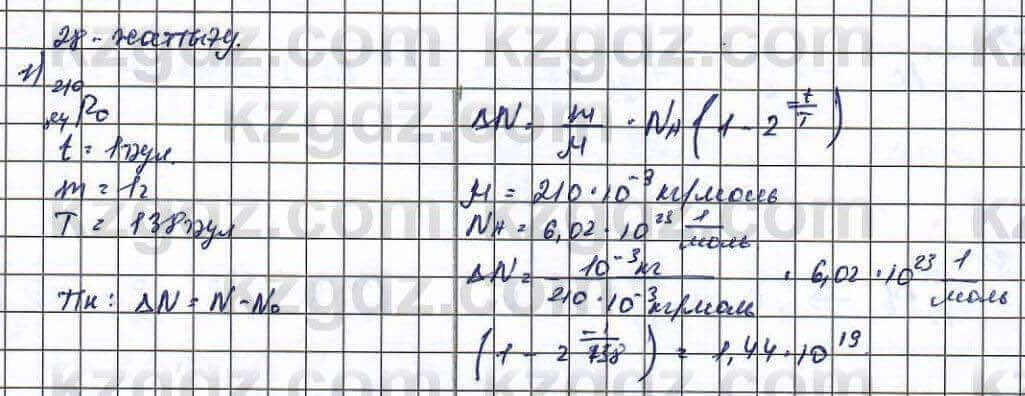 28-жаттығу.
1)
²¹⁰₈₄Po
t = 1тәул.
m = 1г
T = 138тәул
Тк: ΔN = N - N₀
ΔN = m/M · N_A (1 - 2^(-t/T))
M = 210·10⁻³ кг/моль
N_A = 6,02·10²³ 1/моль
ΔN = 10⁻³кг / 210·10⁻³кг/моль · 6,02·10²³ 1/моль
(1 - 2^(-1/138)) = 1,44·10¹⁹
kzgdz.com